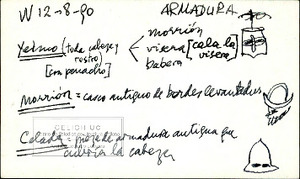 W 12-8-90 ARMADURA
Yelmo (toda cabeza y rostro) [con penacho] < morrión visera babera [cala la visera]
Morrión = casco antiguo de bordes levantados
Celada = pieza de armadura antigua que cubría la cabeza
CELICH UC